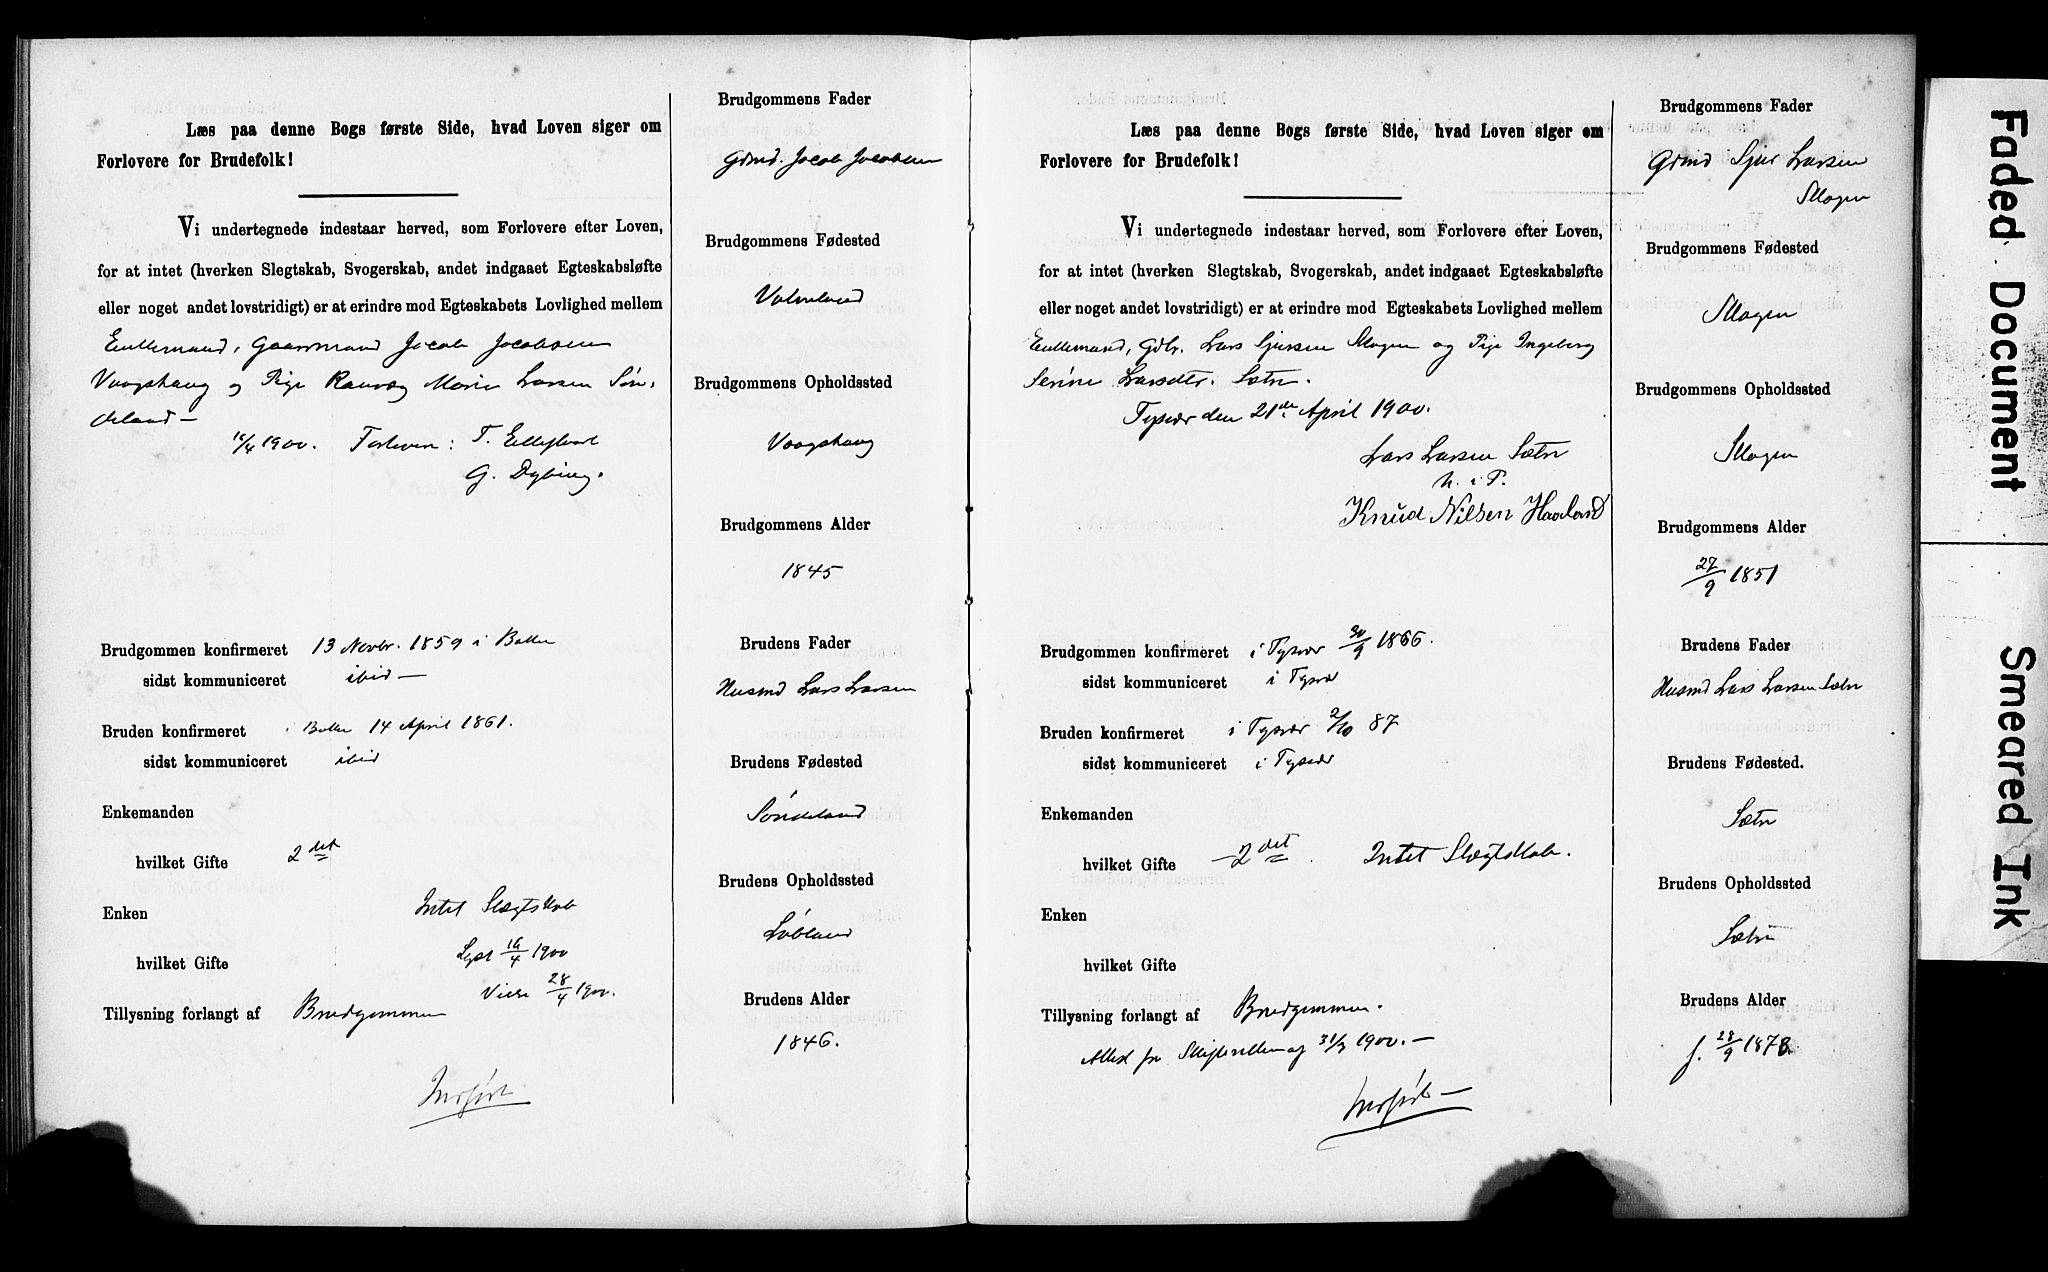 Læs paa denne Bogs første Side, hvad Loven siger om
Forlovere for Brudefolk!
Vi undertegnede indestaar herved, som Forlovere efter Loven,
for at intet (hverken Slegtskab, Svogerskab, andet indgaaet Egteskabsløfte
eller noget andet lovstridigt) er at erindre mod Egteskabets Lovlighed mellem
Enkemand, Gaardmand Jacob Jacobsen
Vaagshaug og Pige Ranveg Marie Larsen Søn-
deland —
1900. Forlovere: T.
G. Dybing.
Brudgommen konfirmeret 13 Novbr. 1859 i Bokn
sidst kommuniceret ibid —
Bruden konfirmeret i Bokn 14 April 1861.
sidst kommuniceret ibid
Enkemanden
hvilket Gifte 2det
Enken
Intet Slægtskab
hvilket Gifte
Lyst 16/4 1900
Viede 28/4 1900.
Tillysning forlangt af Brudgommen
Indført
Brudgommens Fader
Grmd. Jacob Jacobsen
Brudgommens Fødested
Brudgommens Opholdssted
Vaagshaug
Brudgommens Alder
1845
Brudens Fader
Husmd Lars Larsen
Brudens Fødested
Søndeland
Brudens Opholdssted
Brudens Alder
1846.
Læs paa denne Bogs første Side, hvad Loven siger om
Forlovere for Brudefolk!
Vi undertegnede indestaar herved, som Forlovere efter Loven,
for at intet (hverken Slegtskab, Svogerskab, andet indgaaet Egteskabsløfte
eller noget andet lovstridigt) er at erindre mod Egteskabets Lovlighed mellem
Enkemand, Gdbr. Lars Sjursen Mogen og Pige Ingeborg
Serine Larsdtr. Sætr.
Tysvær den 21de April 1900.
Lars Larsen Sætr
m. i P.
Knud Nilsen Haaland
Brudgommen konfirmeret i Tysvær 30/9 1866.
sidst kommuniceret i Tysvær
Bruden konfirmeret i Tysvær 2/10 87
sidst kommuniceret i Tysvær
Enkemanden
hvilket Gifte —2det. Intet Slægtskab.
Enken
hvilket Gifte
Tillysning forlangt af Brudgommen.
Attest fra Skifteretten af 31/3 1900. —
Indført —
Brudgommens Fader
Grmd Sjur Larsen
Mogen
Brudgommens Fødested
Mogen
Brudgommens Opholdssted
Mogen
Brudgommens Alder
27/9 1851
Brudens Fader
Husmd Lars Larsen Sætr
Brudens Fødested.
Sætr
Brudens Opholdssted
Sætr
Brudens Alder
f. 28/9 1873.
Faded Document
Smeared Ink